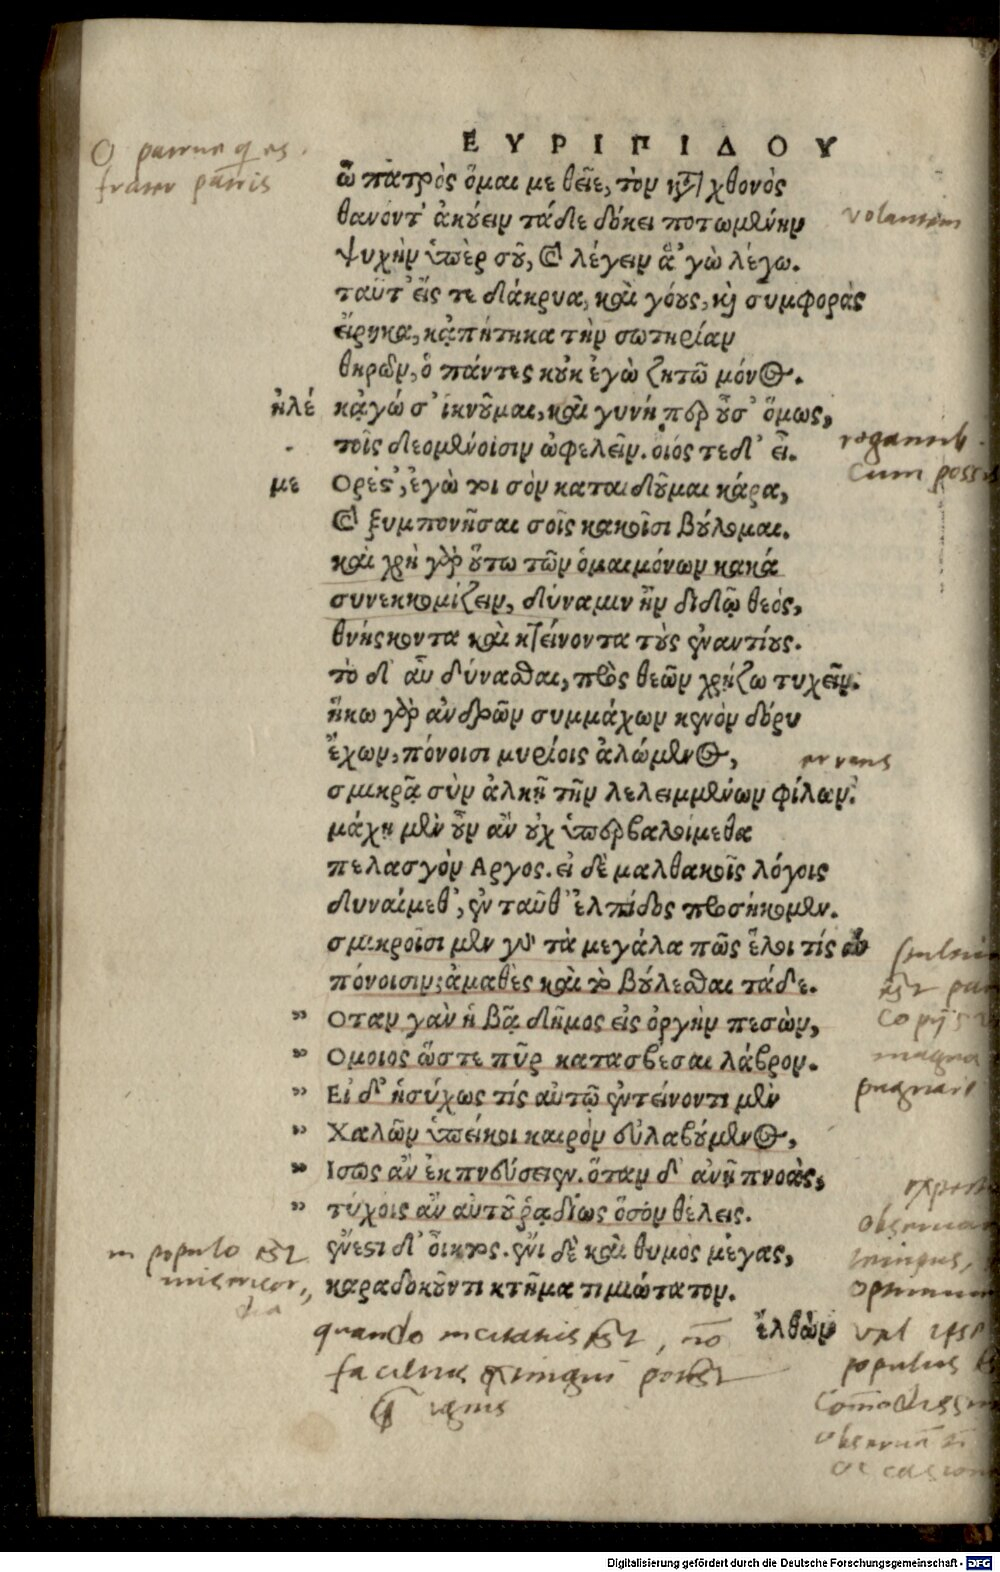 ΕΥΡΙΠΙΔΟΥ
O patrue q es
frater patris
ὦ πατρὸς ὅμαιμε θεῖε, τὸν κτ χθονὸς
θανόντ' ἀκούειν τάδε δόκει ποτωμένην
volantem
ψυχὴν ὑπὲρ σοῦ, καὶ λέγειν ἃ 'γὼ λέγω.
ταῦτ' εἴς τε δάκρυα, καὶ γόους, καὶ συμφορὰς
εἴρηκα, κἀπήτηκα τὴν σωτηρίαν
θηρῶν, ὃ πάντες κοὐκ ἐγὼ ζητῶ μόνος.
ἠλέ κἀγώ σ' ἱκνοῦμαι, καὶ γυνή περ οὖσ' ὅμως,
τοῖς δεομένοισιν ὠφελεῖν. οἷός τε δ' εἶ.
rogantib
cum possis
με Ορέστ', ἐγώ τοι σὸν καταιδοῦμαι κάρα,
καὶ ξυμπονῆσαι σοῖς κακοῖσι βούλομαι.
καὶ χρὴ γὰρ οὕτω τῶν ὁμαιμόνων κακά
συνεκκομίζειν, δύναμιν ἢν διδῷ θεός,
θνήσκοντα καὶ κτείνοντα τοὺς ἐναντίους.
τὸ δ' αὖ δύνασθαι, πρὸς θεῶν χρῄζω τυχεῖν.
ἥκω γὰρ ἀνδρῶν συμμάχων κενὸν δόρυ
ἔχων, πόνοισι μυρίοις ἀλώμενος,
errans
σμικρᾷ σὺν ἀλκῇ τῶν λελειμμένων φίλων.
μάχῃ μὲν οὖν ἂν οὐχ ὑπερβαλοίμεθα
πελασγὸν Αργος. εἰ δὲ μαλθακοῖς λόγοις
δυναίμεθ', ἐνταῦθ' ἐλπίδος προσήκομεν.
σμικροῖσι μὲν γὰρ τὰ μεγάλα πῶς ἕλοι τίς ἂν
πόνοισιν; ἀμαθὲς καὶ τὸ βούλεσθαι τάδε.
stultum
est
copijs
magna
pugnare
" Οταν γὰν ἡβᾷ δῆμος εἰς ὀργὴν πεσὼν,
" Ομοιος ὥστε πῦρ κατασβέσαι λάβρον.
" Εἰ δ' ἡσύχως τίς αὐτῷ ἐντείνοντι μὲν
" Χαλῶν ὑπείκοι καιρὸν εὐλαβούμενος,
" Ισως ἂν ἐκπνεύσειεν. ὅταν δ' ἀνῇ πνοὰς,
" τύχοις ἂν αὐτοῦ ῥᾳδίως ὅσον θέλεις.
ἔνεστι δ' οἶκτος. ἔνι δὲ καὶ θυμὸς μέγας,
καραδοκοῦντι κτῆμα τιμιώτατον.
in populo est
misericor,,
dia
ἐλθὼν
quando incitatus est, no
facilius extingui potest
ignis
vel ipse
populus
comodiss